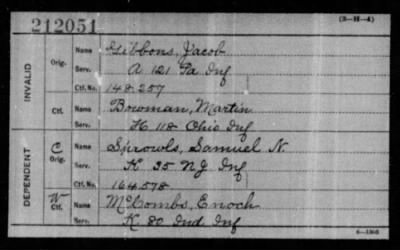 212051
(3-H-4)
INVALID
Orig.
Name Gibbons, Jacob
Serv. A 121 Pa Inf
Ctf. No. 148.257
Ctf.
Name Bowman, Martin
Serv. H 118 Ohio Inf
DEPENDENT
C
Orig.
Name Sprowls, Samuel N.
Serv. K 35 NJ Inf
Ctf. No. 164.578
W
Ctf.
Name McCombs, Enoch
Serv. K 80 Ind Inf